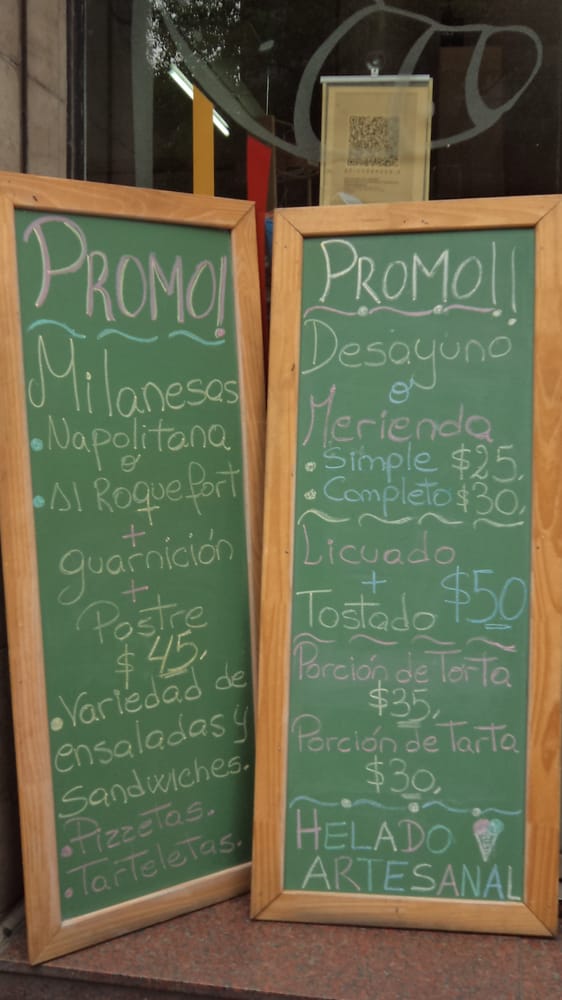 PROMO!
Milanesas
• Napolitana
o
• Al Roquefort
+
guarnición
+
Postre
$ 45.
• Variedad de
ensaladas y
Sandwiches.
• Pizzetas.
• Tarteletas.
PROMO!!
Desayuno
o
Merienda
• Simple $25.
• Completo $30.
Licuado
+
Tostado $50
Porción de Torta
$35.
Porción de Tarta
$30.
HELADO
ARTESANAL